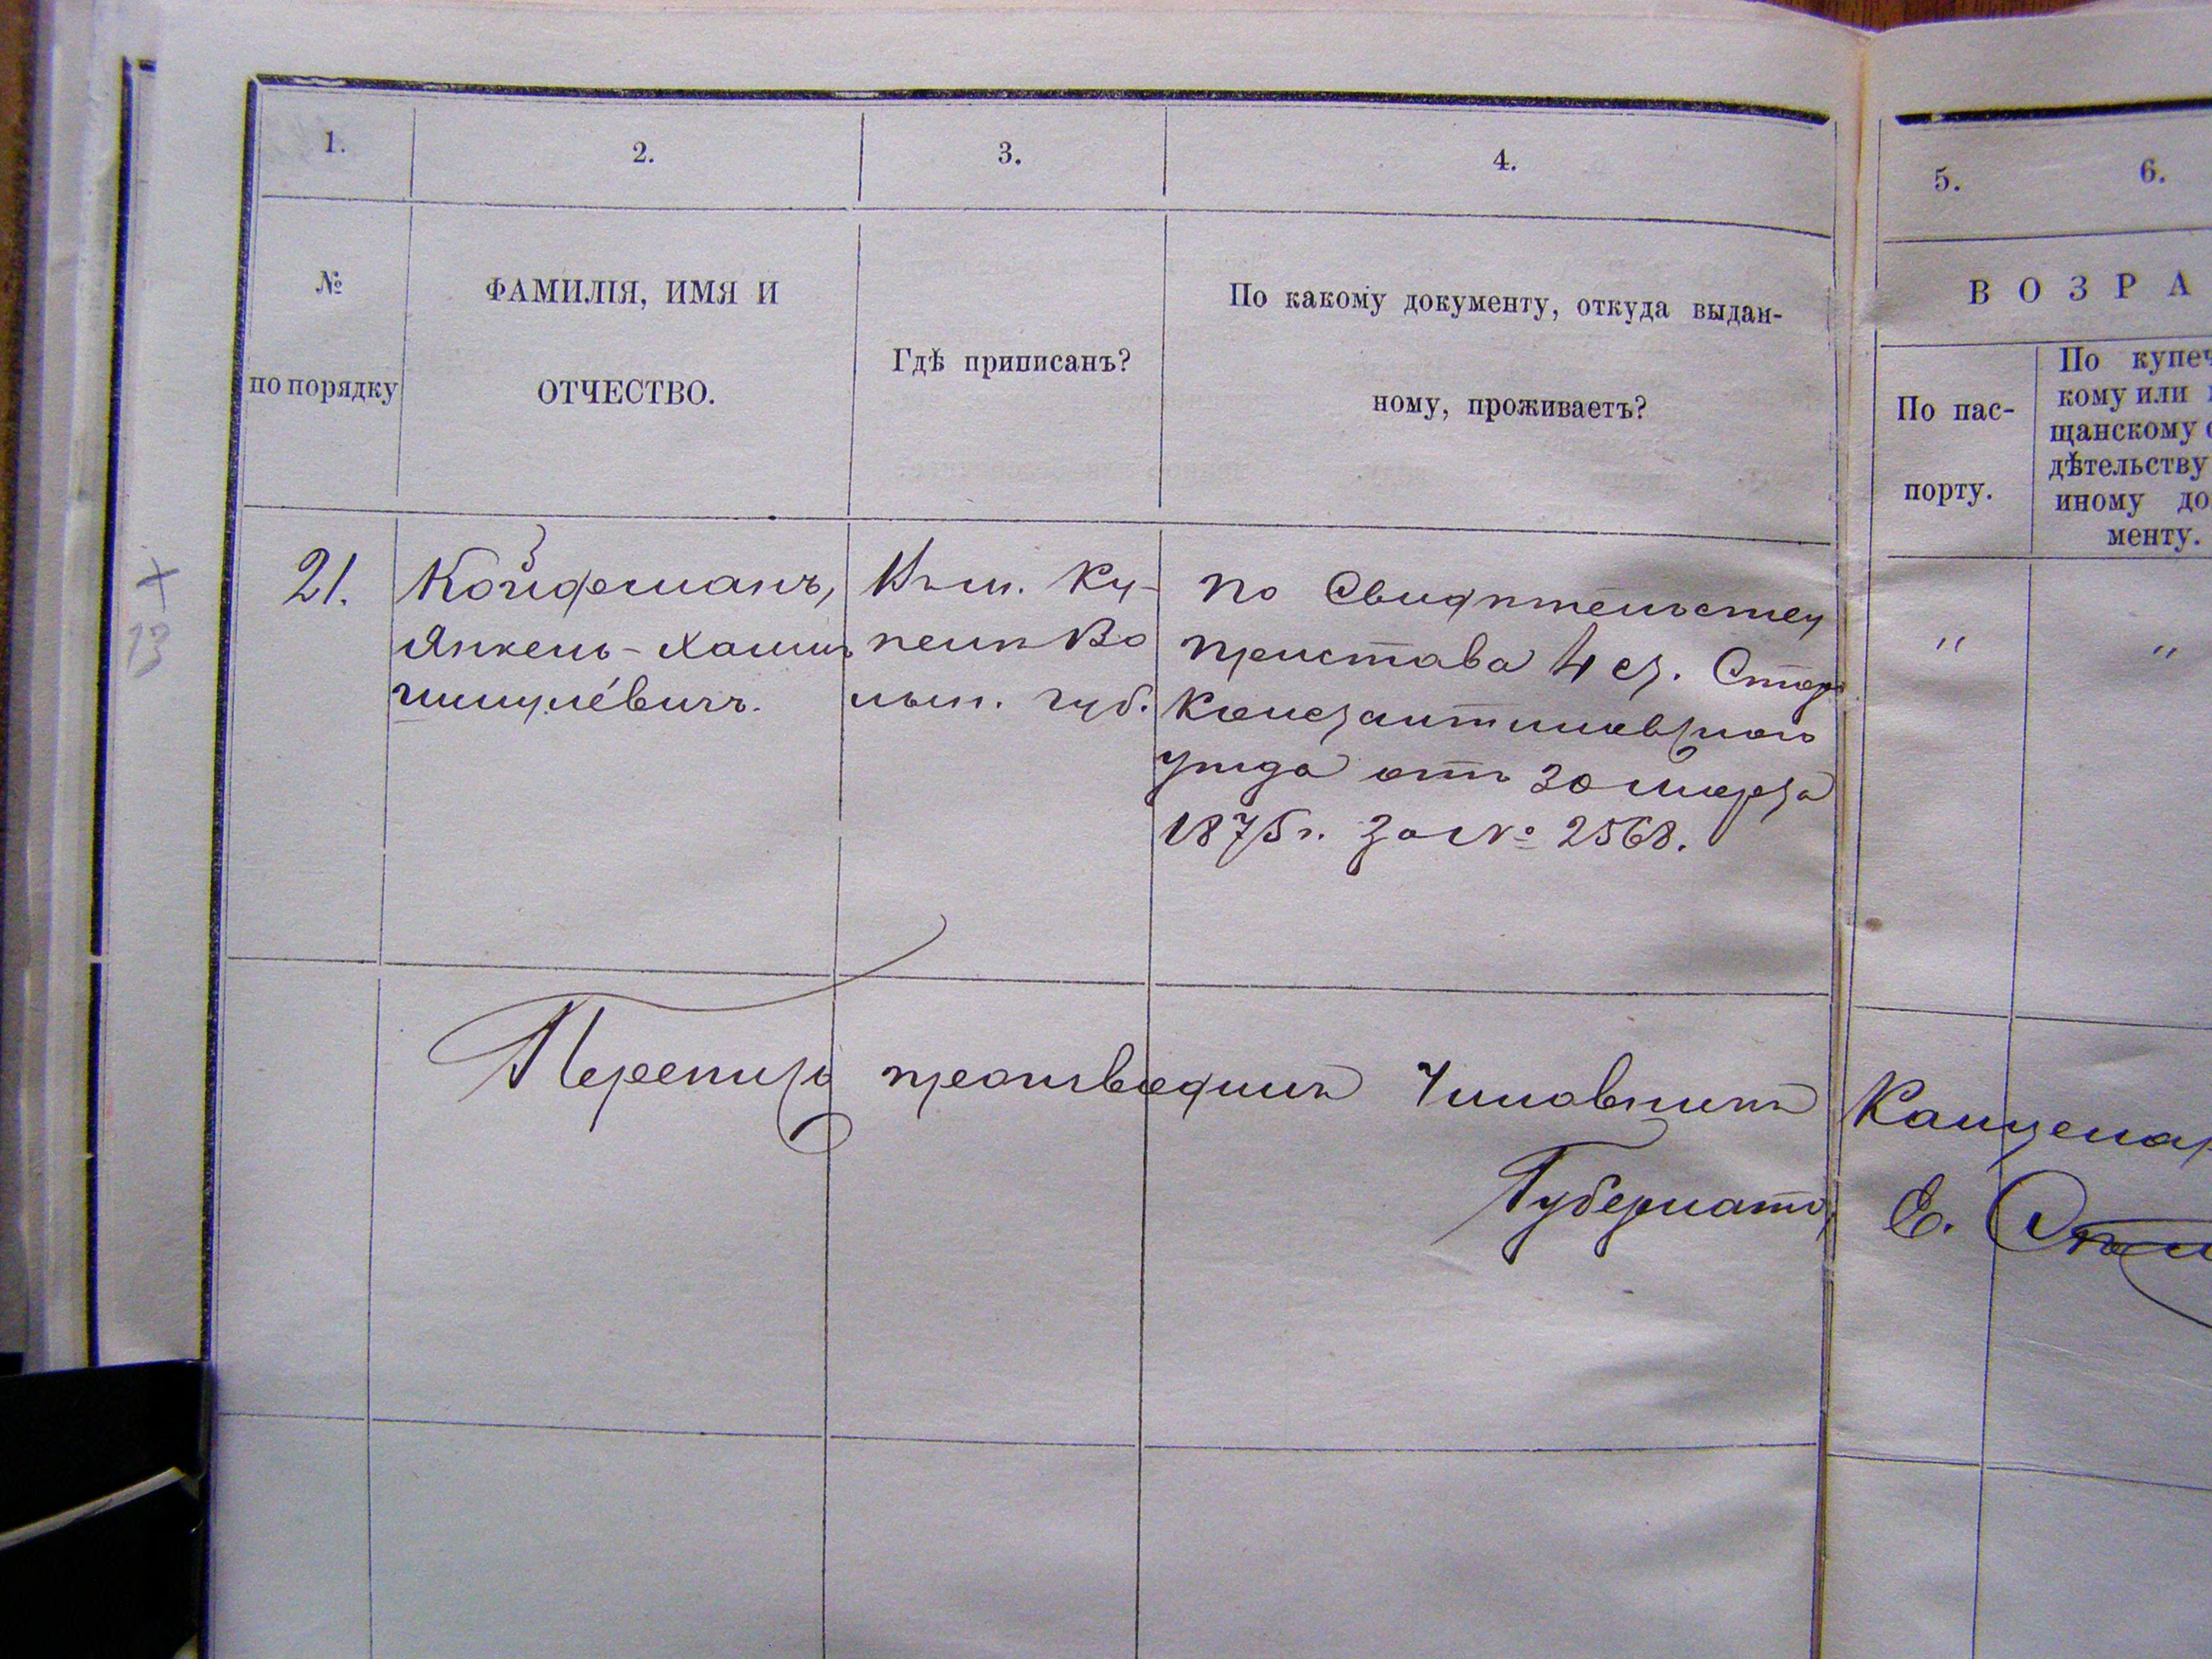 1.
2.
3.
4.
5.
6.
№
по порядку
ФАМИЛІЯ, ИМЯ И
ОТЧЕСТВО.
Гдѣ приписанъ?
По какому документу, откуда выдан-
ному, проживаетъ?
ВОЗРА
По пас-
порту.
По купеч
кому или
щанскому
дѣтельству
иному до
менту.
21.
Койфманъ,
Янкель-Хаимъ
Шмулевичъ.
Ку-
Во
лын. губ.
По Свидѣтельству
Пристава 4 ст. Старо
Константиновскаго
уѣзда отъ 30 Марта
1875 г. за № 2568.
"
"
+
13
Перепись производилъ Чиновникъ Канцеляр
Губернато
Е.